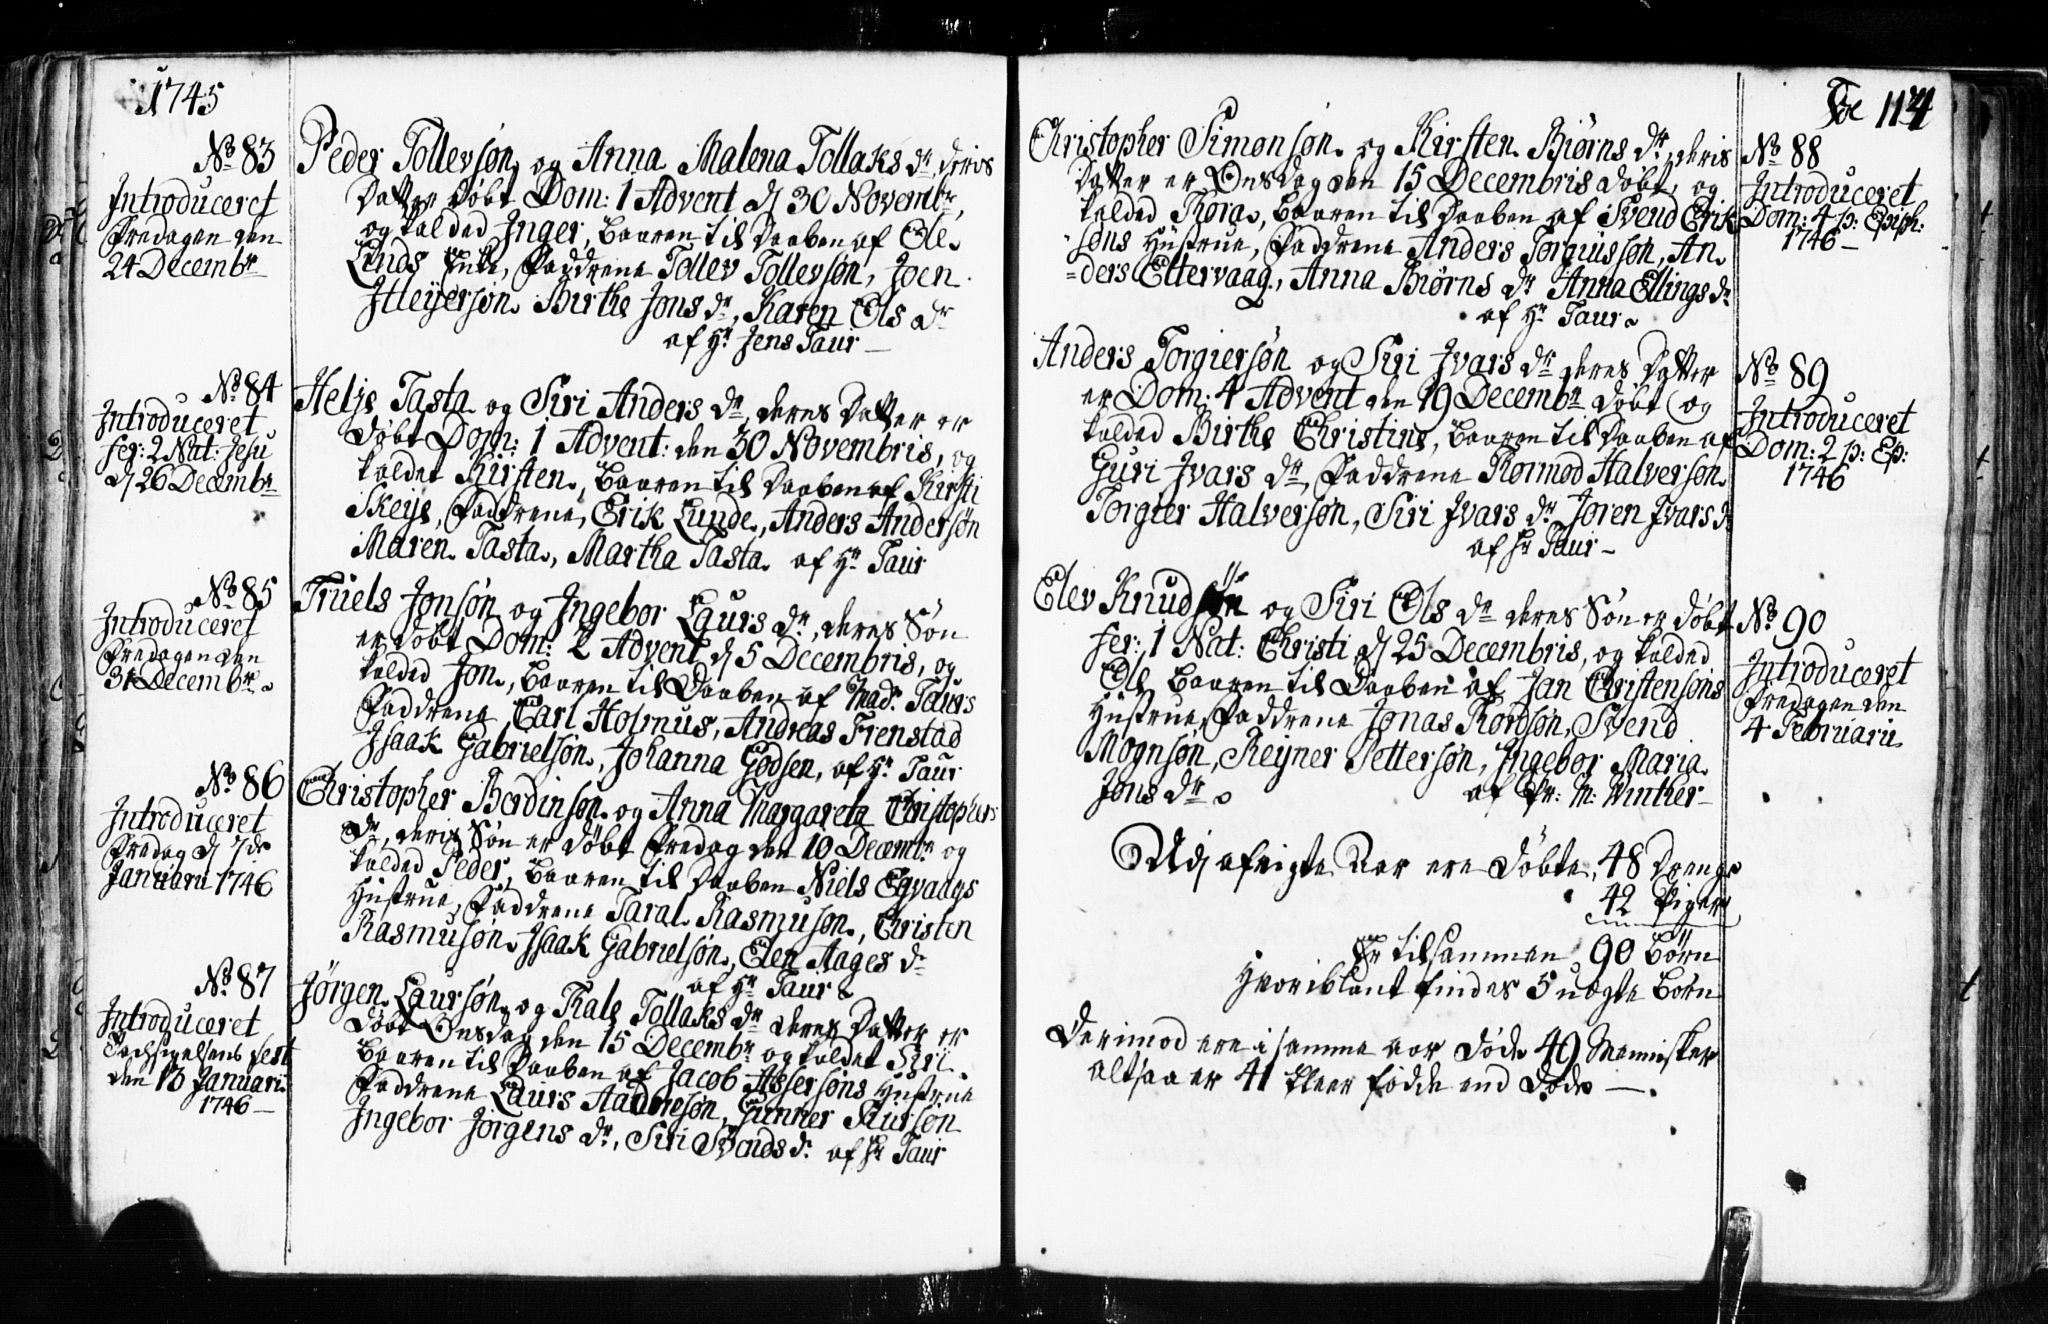 1745
No 83
Introduceret
Fredagen den
24 Decembr
Peder Tollevsøn og Anna Malena Tollaks dr, deris
Datter døbt Dom: 1 Advent d 30 Novembr,
og kalded Inger, baaren til Daaben af Ole
Linds Enke, Faddrene Tollev Tollevsøn, Joen
Itleyersøn. Birthe Jons dr, Karen Ols dr
af Hr Jens Taur
No 84
Introduceret
fer: 2 Nat: Jesu
d 26 Decembr
Helje Tasta og Siri Anders dr, deres Datter er
døbt Dom: 1 Advent: den 30 Novembris, og
kaldet Kirsten, baaren til Daaben af Kirsti
Skeije, Faddrene, Erik Lunde, Anders Andersøn
Maren Tasta, Martha Tasta. af Hr Taur
No 85
Introduceret
Fredagen den
31 Decembr
Truels Jonsøn og Ingebor Laurs dr, deres Søn
er døbt Dom: 2 Advent d 5 Decembris, og
kalded Jon, baaren til Daaben af Mad. Taurs
Faddrene Carl Holmus, Andreas Frenstad
Isaak Gabrielsøn, Johanna Godsen, af Hr Taur
No 86
Introduceret
Fredag d 7de
Januarii 1746
Christopher Berdinsøn og Anna Margareta Christophers
dr, deris Søn er døbt Fredag den 10 Decembr og
kalded Peder, baaren til Daaben Niels Egvaags
Hustrue, Faddrene Taral Rasmusøn, Christen
Rasmusøn, Isaak Gabrielsøn, Elen Aages dr
af Hr Taur
No 87
Introduceret
fest
den 13 Januarii
1746
Jørgen Laursøn og Thale Tollaks dr deres Datter er
døbt Onsdag den 15 Decembr og kaldet Sirii
baaren til Daaben af Jacob Assersøns Hustrue
Faddrene Laurs Aadnesøn, Gunner Taursøn
Ingebor Jørgens dr, Siri Svends dr af Hr Taur
114
Christopher Simonsøn og Kirsten Biørns dr, deris
Datter er Onsdag den 15 Decembris døbt, og
kalded Thora, baaren til Daaben af Svend Erik
søns Hustrue, Faddrene Anders Torgiusson, An
=ders Ettervaag, Anna Biørns dr Anna Ellings dr
af Hr Taur
No 88
Introduceret
Dom: 4 p: Epiph:
1746
Anders Torgiersøn og Siri Ivars dr deres Datter
er Dom: 4 Advent den 19 Decembr døbt og
kalded Birthe Christine, baaren til Daaben af
Guri Ivars dr, Faddrene Rormod Halversøn
Torgier Halversøn, Siri Ivars dr Joren Ivars dr
af Hr Taur
No 89
Introduceret
Dom: 2 p: Ep:
1746
Elev Knudsøn og Siri Ols dr deres Søn er døbt
fer: 1 Nat: Christi d 25 Decembris, og kalded
Ole baaren til Daaben af Jan Christensøns
Hustrue, Faddrene Jonas Thordsøn, Svend
Mognsøn, Reyner Pettersøn, Ingebor Maria
Jons dr
af Pr: M: Winther
No 90
Introduceret
Fredagen den
4 Februarii
Udj afvigte Aar ere døbte, 48 Drenge
42 Piger
Er tilsammen 90 Børn
Hvoriblant findes 5 uægte Børn
Derimod ere i samme aar døde 49 Mennisker
altsaa er 41 fleer fødde end Døde